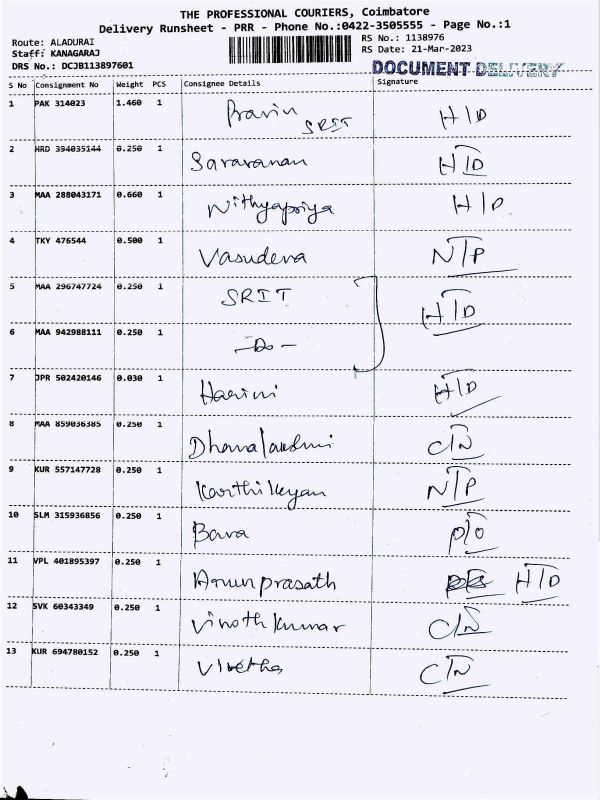 THE PROFESSIONAL COURIERS, Coimbatore
Delivery Runsheet - PRR - Phone No.:0422-3505555 - Page No.:1
Route: ALADURAI RS No.: 1138976
Staff: KANAGARAJ RS Date: 21-Mar-2023
DRS No.: DCJB113897601 DOCUMENT DELIVERY
S No Consignment No Weight PCS Consignee Details Signature
1 PAK 314023 1.460 1 Pravin SRIT H/D
2 HRD 394035144 0.250 1 Saravanan H/D
3 MAA 288043171 0.660 1 Nithyapriya H/D
4 TKY 476544 0.500 1 Vasudeva N/P
5 MAA 296747724 0.250 1 SRIT H/D
6 MAA 942988111 0.250 1 -Do-
7 JPR 502420146 0.030 1 Harini H/D
8 MAA 859036385 0.250 1 Dhanalakshmi C/N
9 KUR 557147728 0.250 1 Karthikeyan N/P
10 SLM 315936856 0.250 1 Bava P/O
11 VPL 401895397 0.250 1 Arunprasath H/D
12 SVK 60343349 0.250 1 Vinoth kumar C/N
13 KUR 694780152 0.250 1 C/N